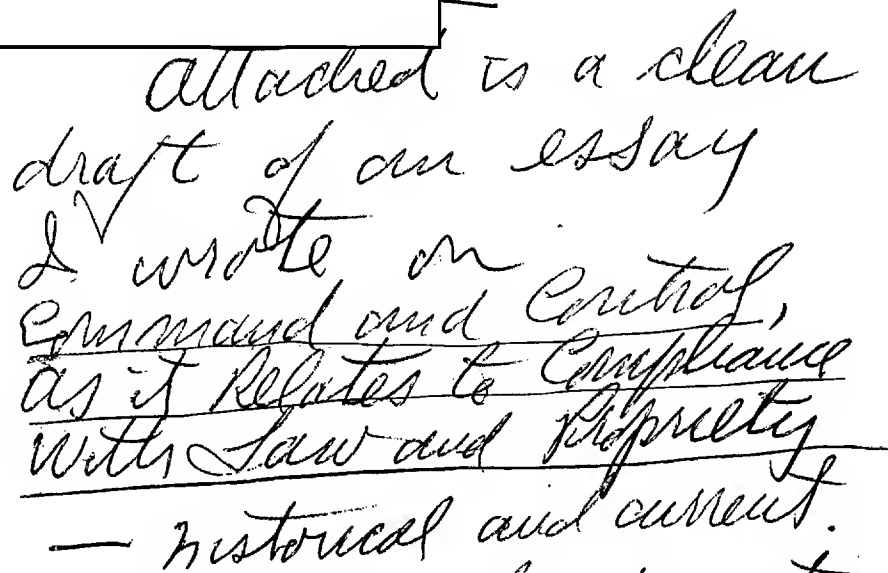 attached is a clean
draft of an essay
I wrote on
Command and Control,
as it Relates to Compliance
with Law and Propriety
— historical and current.